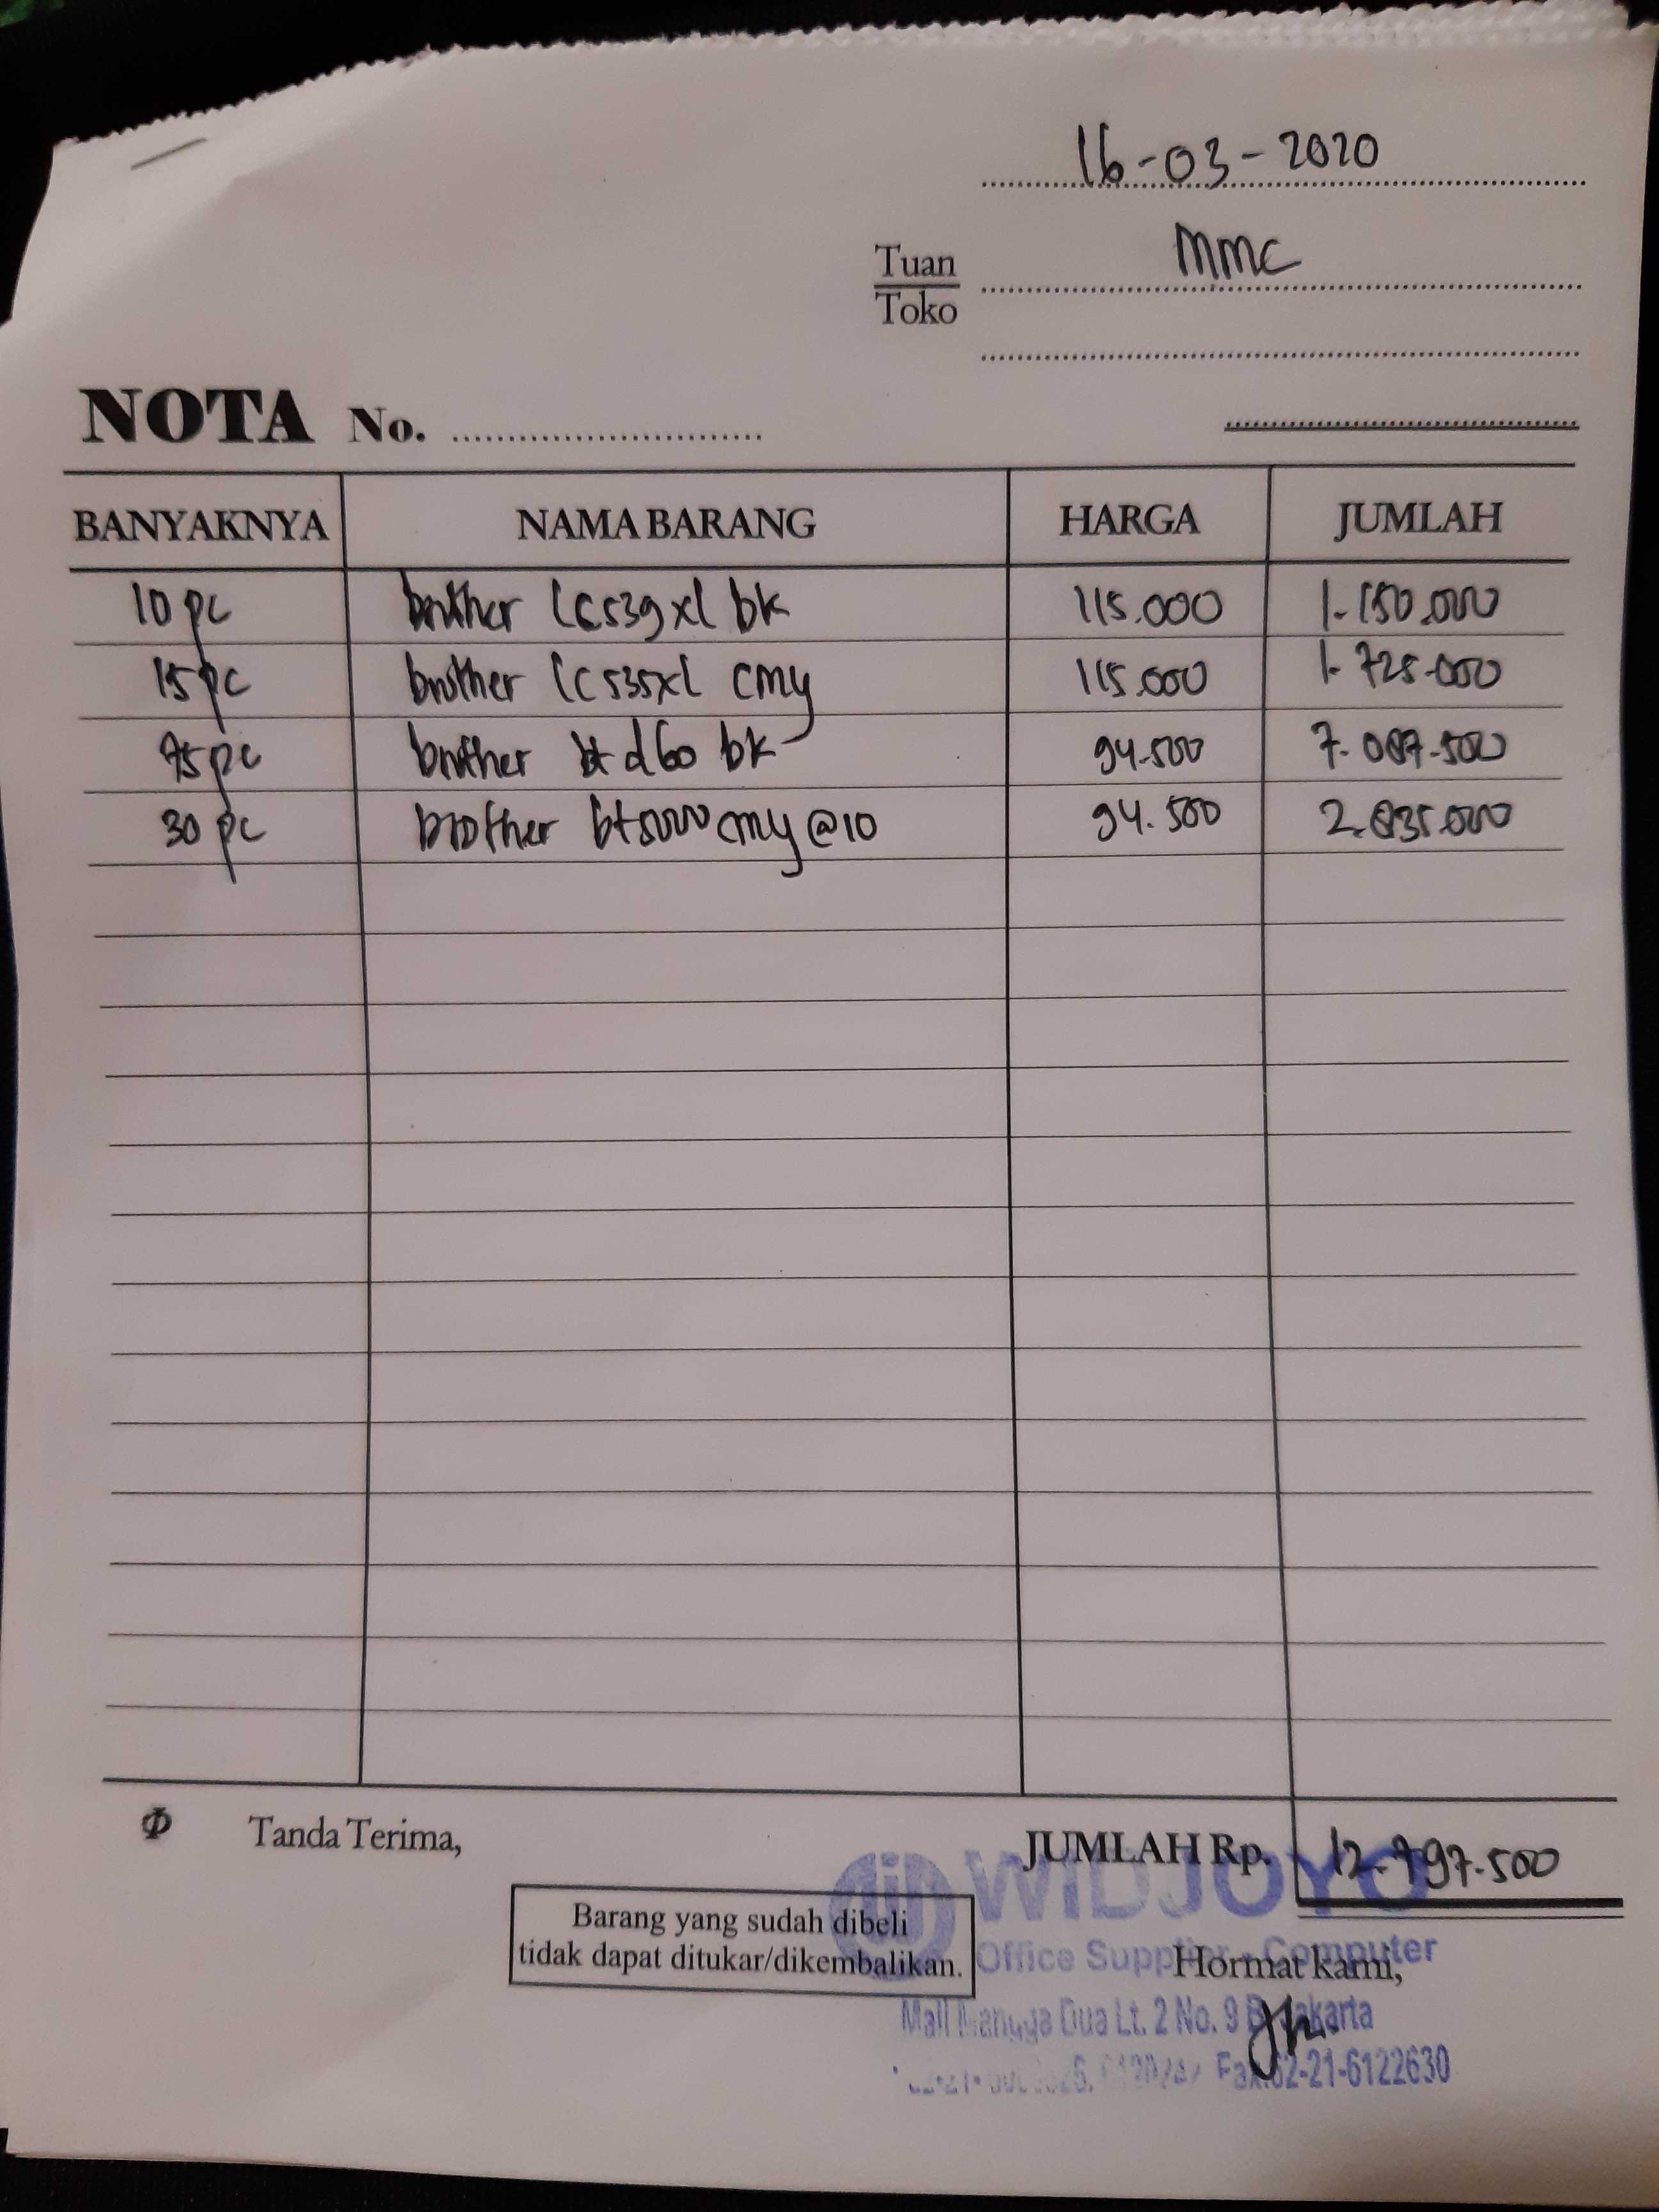 16-03-2020
Tuan mmc
Toko
NOTA No. ..............................
BANYAKNYA NAMA BARANG HARGA JUMLAH
10 pc brother lc539xl bk 115.000 1.150.000
15 pc brother lc535xl cmy 115.000 1.725.000
75 pc brother bt d60 bk 94.500 7.087.500
30 pc brother bt5000 cmy @10 94.500 2.835.000
Φ Tanda Terima, JUMLAH Rp. 12.797.500
WIDJOYO
Barang yang sudah dibeli
tidak dapat ditukar/dikembalikan.
Office Supplier - Computer
Hormat kami,
Mall Mangga Dua Lt. 2 No. 9 B Jakarta
Fax.62-21-6122630